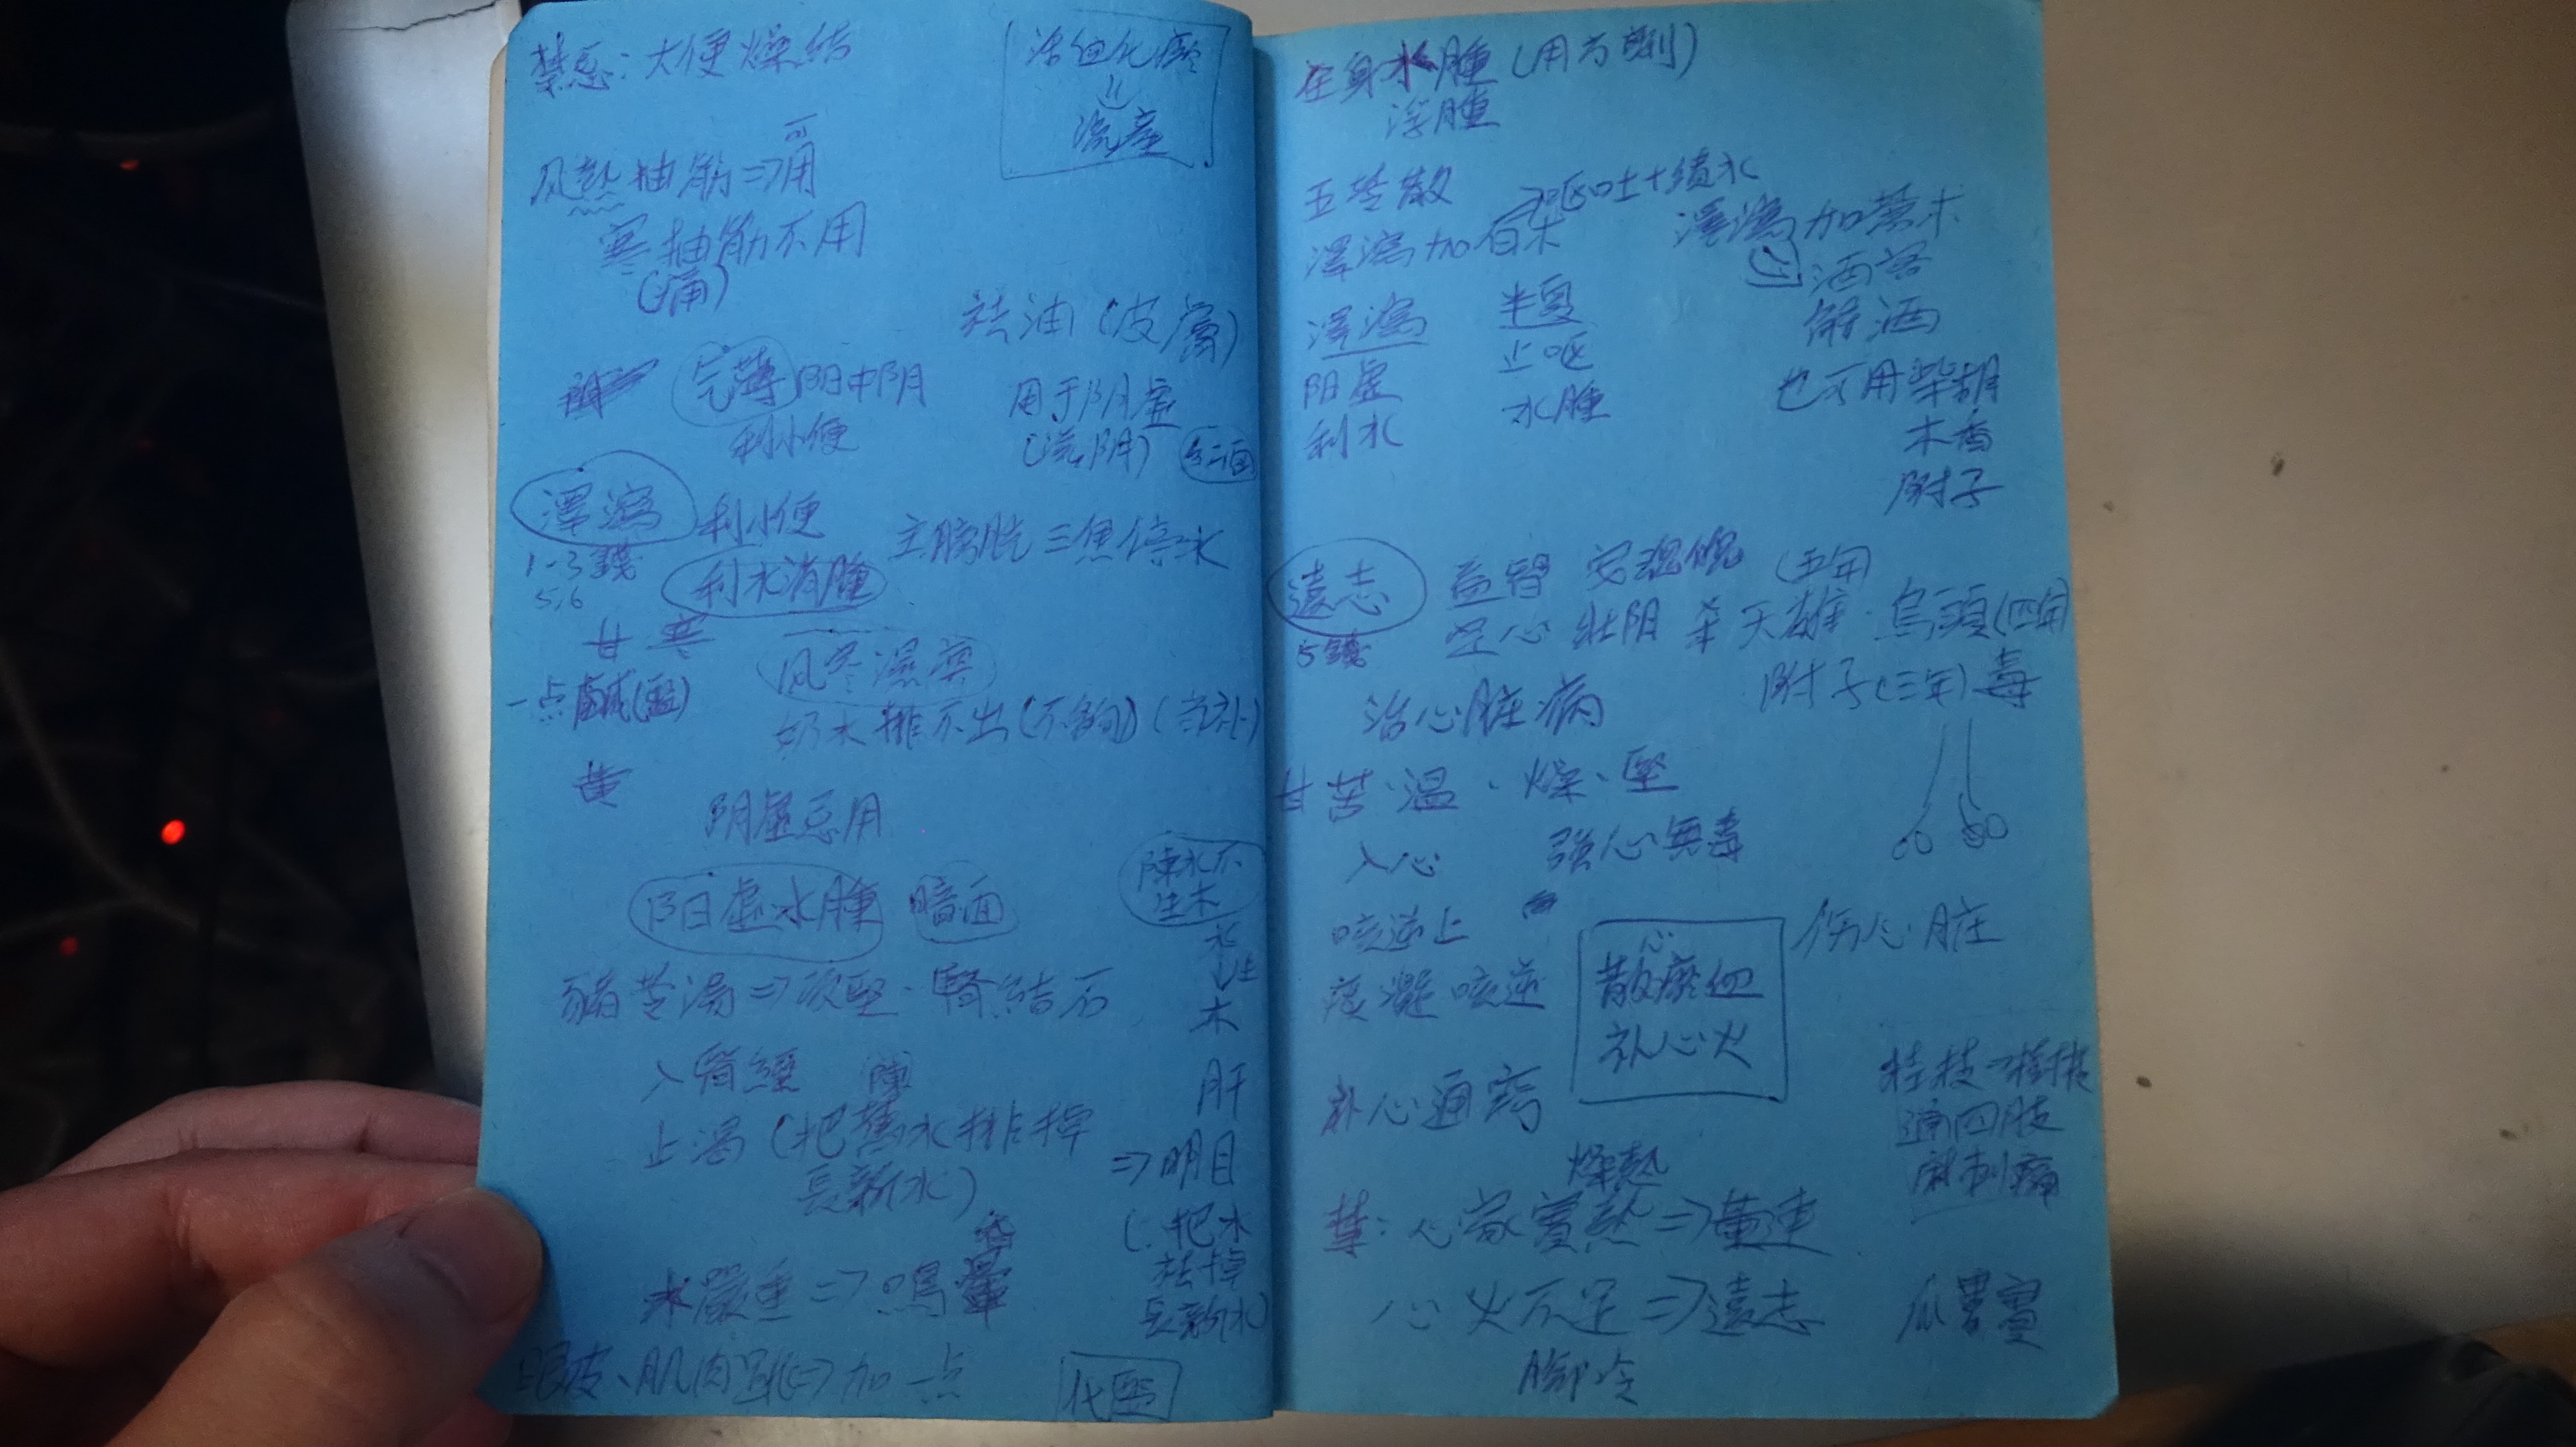 禁忌：大便燥結
活血化瘀
流産
可
风熱抽筋⇒用
寒抽筋不用
(痛)
祛油(皮膚)
气薄 阳中阴
利小便
用于阴虚
澤瀉 利小便
1-3錢
5,6
利水消腫
主膀胱三焦停水
甘 寒
一点鹹(鹽)
风寒濕
奶水排不出(不夠)
黄
阴虚忌用
阳虚水腫 暗面
陳水不
生木
水
生
木
豬苓湯⇒軟堅、腎結石
入腎經 陳
止渴(把舊水排掉
長新水)
肝
⇒明目
(∵把水
祛掉
長新水)
水嚴重⇒
眼皮、肌肉跳⇒加一点
化
全身水腫(用方劑)
浮腫
五苓散
⇒嘔吐+積水
澤瀉加白朮
澤瀉加蒼朮
酒客
解酒
澤瀉
阳虚
利水
半夏
止呕
水腫
也不用柴胡
木香
附子
遠志 益智 安魂魄
5錢
定心 壯阳 杀天雄(五年)、烏頭(四年)
附子(三年)毒
治心脏病
甘苦、温、燥、堅
入心 強心無毒
咳逆上
痰凝咳逆
心
散瘀血
补心火
伤心脏
补心通竅
桂枝⇒樹枝
通四肢
麻刺痛
燥熱
禁：心家實熱⇒黄連
心火不足⇒遠志
脚冷
瓜蔞實